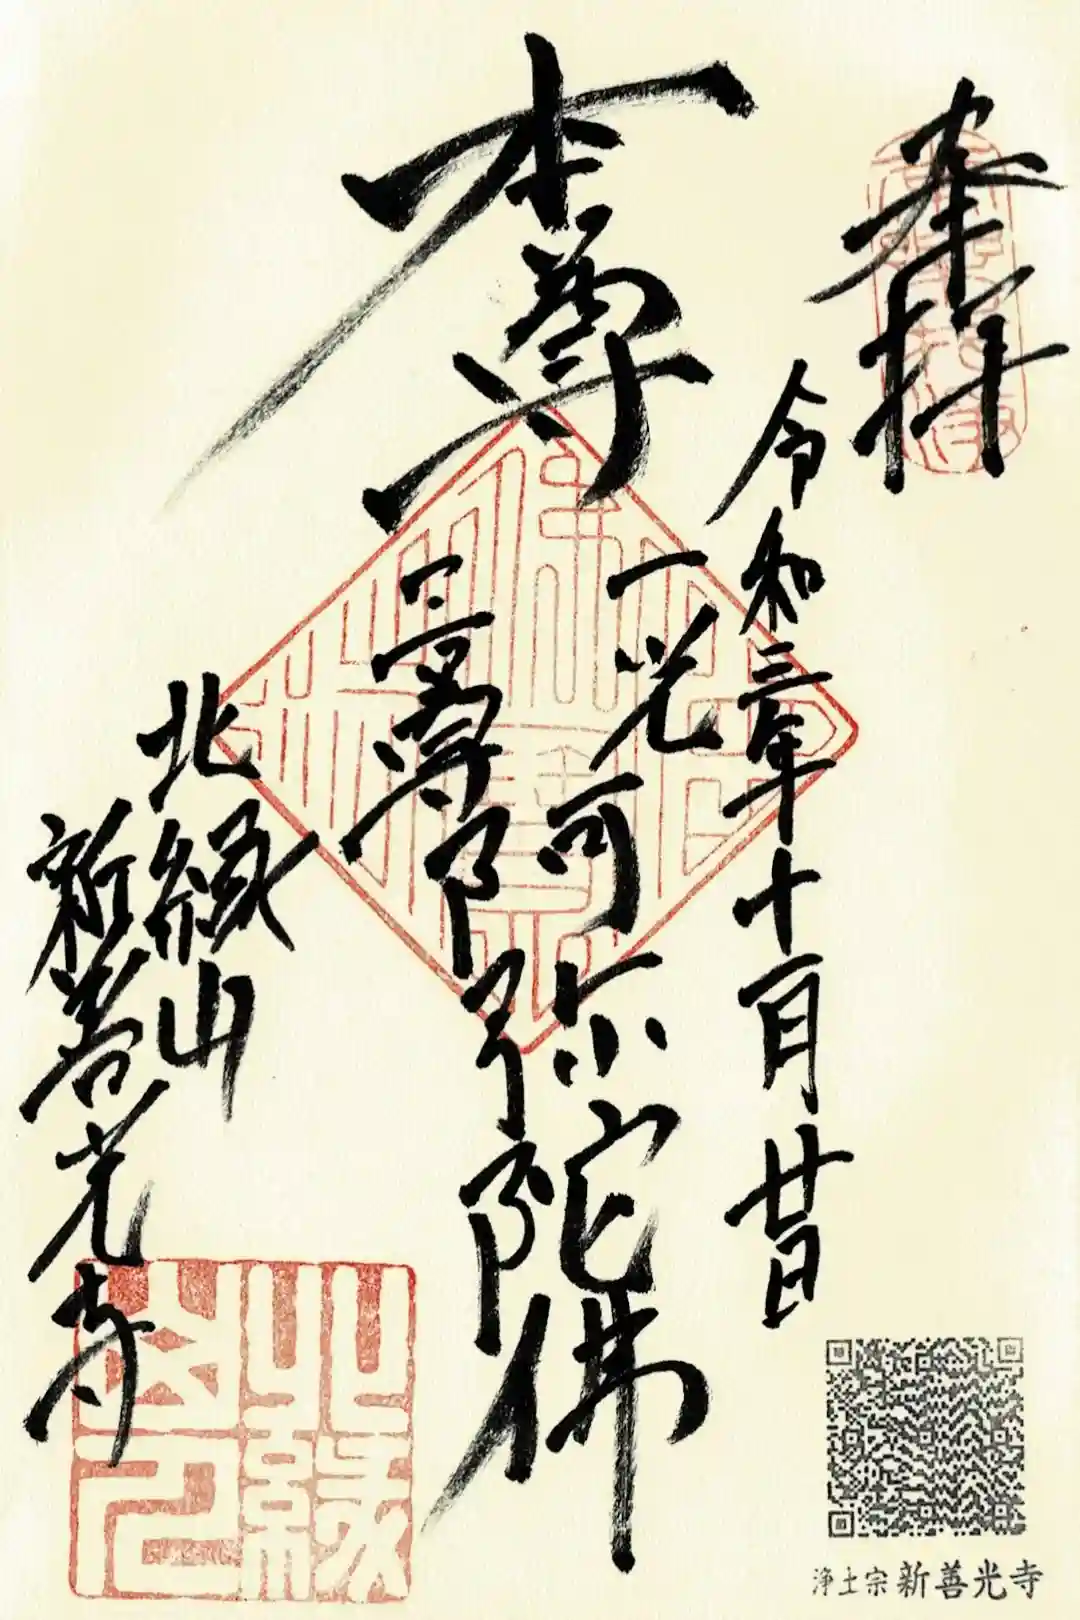 奉拝
令和三年十一月廿日
本尊
一光
三尊
阿弥陀佛
北縁山
新善光寺
浄土宗 新善光寺